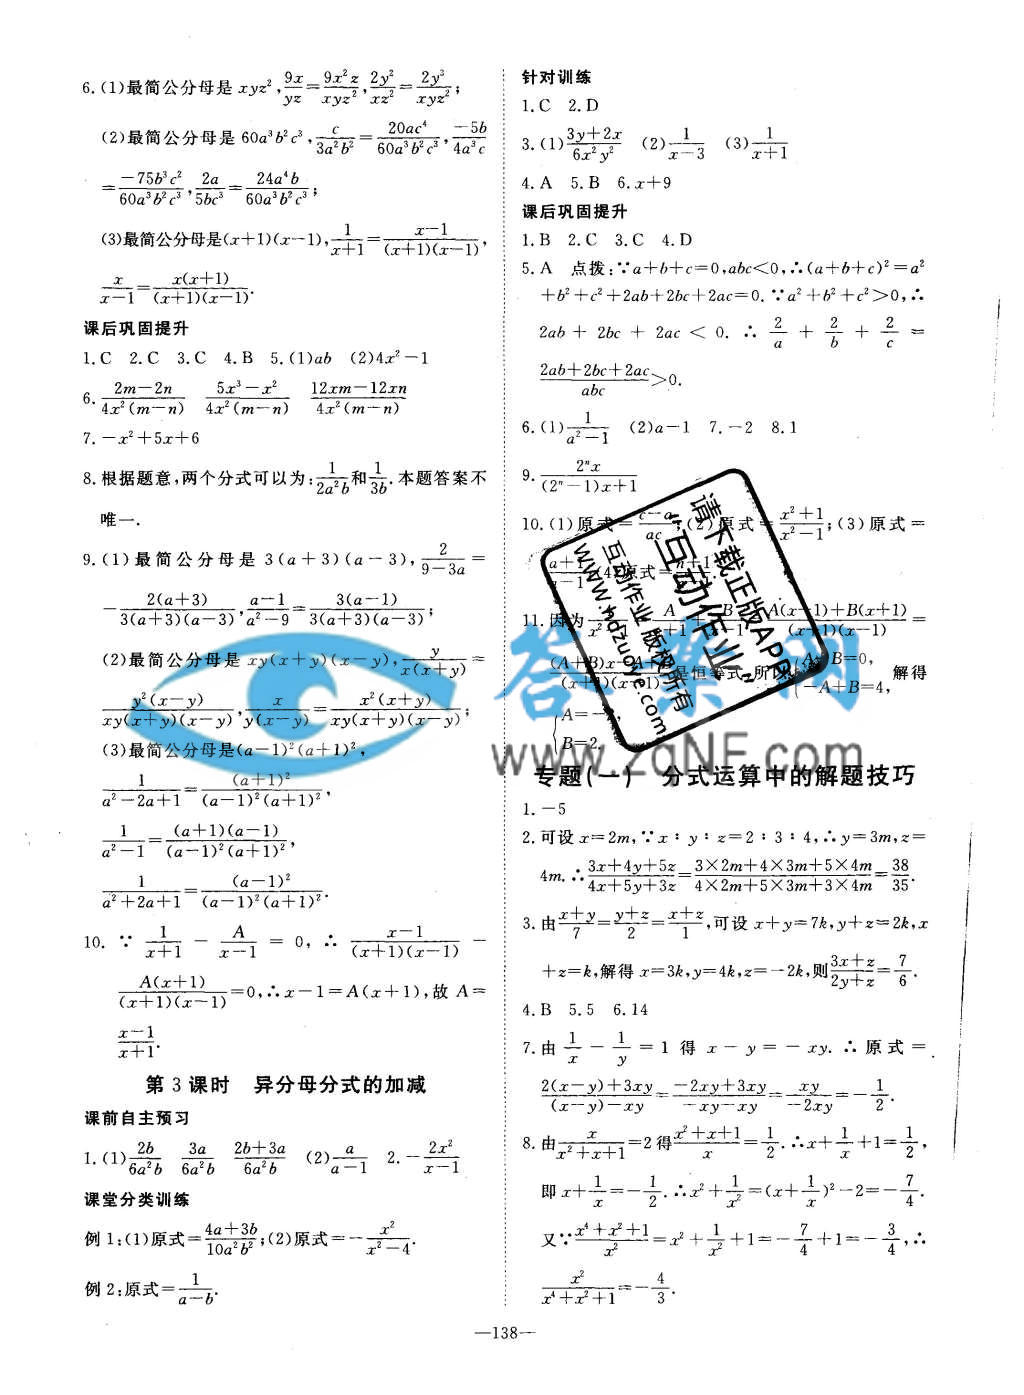 6.(1)最简公分母是 xyz²,9x/yz=9x²z/xyz²,2y²/xz²=2y³/xyz²;
(2)最简公分母是 60a³b²c³,c/3a²b²=20ac⁴/60a³b²c³,−5b/4a³c
=−75b³c²/60a³b²c³,2a/5bc³=24a⁴b/60a³b²c³;
(3)最简公分母是(x+1)(x−1),1/x+1=x−1/(x+1)(x−1),
x/x−1=x(x+1)/(x+1)(x−1).
课后巩固提升
1.C 2.C 3.C 4.B 5.(1)ab (2)4x²−1
6. 2m−2n/4x²(m−n) 5x³−x²/4x²(m−n) 12xm−12xn/4x²(m−n)
7.−x²+5x+6
8.根据题意,两个分式可以为:1/2a²b和1/3b.本题答案不
唯一.
9.(1)最简公分母是 3(a+3)(a−3),2/9−3a=
−2(a+3)/3(a+3)(a−3),a−1/a²−9=3(a−1)/3(a+3)(a−3);
(2)最简公分母是 xy(x+y)(x−y),y/x(x+y)=
y²(x−y)/xy(x+y)(x−y),x/y(x−y)=x²(x+y)/xy(x+y)(x−y);
(3)最简公分母是(a−1)²(a+1)²,
1/a²−2a+1=(a+1)²/(a−1)²(a+1)²,
1/a²−1=(a+1)(a−1)/(a−1)²(a+1)²,
1/a²+2a+1=(a−1)²/(a−1)²(a+1)².
10.∵1/x+1−A/x−1=0,∴x−1/(x+1)(x−1)−
A(x+1)/(x+1)(x−1)=0,∴x−1=A(x+1),故 A=
x−1/x+1.
第3课时 异分母分式的加减
课前自主预习
1.(1)2b/6a²b 3a/6a²b 2b+3a/6a²b (2)a/a−1 2.−2x²/x−1
课堂分类训练
例1:(1)原式=4a+3b/10a²b²;(2)原式=−x²/x²−4.
例2:原式=1/a−b.
针对训练
1.C 2.D
3.(1)3y+2x/6x²y² (2)1/x−3 (3)1/x+1
4.A 5.B 6.x+9
课后巩固提升
1.B 2.C 3.C 4.D
5.A 点拨:∵a+b+c=0,abc<0,∴(a+b+c)²=a²
+b²+c²+2ab+2bc+2ac=0.∵a²+b²+c²>0,∴
2ab+2bc+2ac<0.∴2/a+2/b+2/c=
2ab+2bc+2ac/abc>0.
6.(1)1/a²−1 (2)a−1 7.−2 8.1
9. 2ⁿx/(2ⁿ−1)x+1
10.(1)原式=c−a/ac;(2)原式=x²+1/x²−1;(3)原式=
a+1/a−1;(4)原式=
11.因为 A(x−1)+B(x+1)/(x+1)(x−1)=
(A+B)x−A+B/(x+1)(x−1)是恒等式,所以{A+B=0, −A+B=4, 解得
{A=−
B=2.
专题(一) 分式运算中的解题技巧
1.−5
2.可设 x=2m,∵x∶y∶z=2∶3∶4,∴y=3m,z=
4m.∴3x+4y+5z/4x+5y+3z=3×2m+4×3m+5×4m/4×2m+5×3m+3×4m=38/35.
3.由x+y/7=y+z/2=x+z/1,可设 x+y=7k,y+z=2k,x
+z=k,解得 x=3k,y=4k,z=−2k,则3x+z/2y+z=7/6.
4.B 5.5 6.14
7.由1/x−1/y=1 得 x−y=−xy.∴原式=
2(x−y)+3xy/(x−y)−xy=−2xy+3xy/−xy−xy=xy/−2xy=−1/2.
8.由x/x²+x+1=2得x²+x+1/x=1/2.∴x+1/x+1=1/2,
即x+1/x=−1/2.∴x²+1/x²=(x+1/x)²−2=−7/4.
又∵x⁴+x²+1/x²=x²+1/x²+1=−7/4+1=−3/4,∴
x²/x⁴+x²+1=−4/3.
—138—
请下载正版APP
“互动作业”
互动作业 版权所有
www.hdzuoye.com
答案网
www.zqNF.com